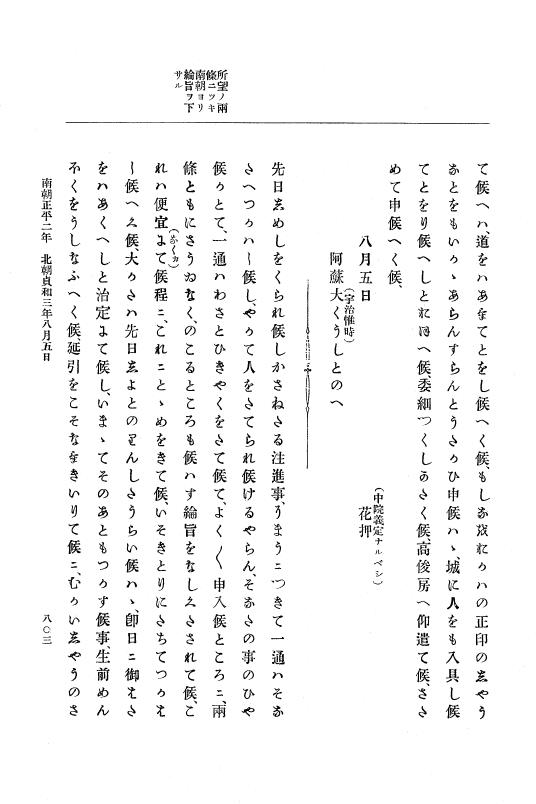 所望ノ兩
條ニツキ
南朝ヨリ
綸旨ヲ下
サル
て候へハ、道をハあけてとをし候へく候、もし
の正印の志やう
とをもいかゝあらんすらんとうたかひ申候ハゝ、城に人をも入具し候
てとをり候へしと
へ候、委細つくしかたく候、高俊房へ仰遣て候、さた
めて申候へく候、
八月五日
花押
(中院義定ナルベシ)
阿蘇大くうしとのへ
(宇治惟時)
先日志めしをくられ候しかさねたる注進事、かまうこつきて一通ハそな
たへつかハし候し、やかて人をたてられ候けるやらん、そなたの事のひや
候かとて、一通ハわさとひきやくをたて候て、よく〳〵申入候ところニ、兩
條ともにさうゐなく、のこるところも候ハす綸旨をなし下されて候、こ
れハ便宜よて候程ニ、これニとゝめをきて候、いそきとりにたちてつかは
し候へく候、大かたハ先日志よとの
んしさうらい候ハゝ、卽日ニ御
をハあくへしと治定して候し、いまゝてそのあともつかす候事、生前めん
ほくをうしなふへく候、延引をこそなけきいりて候ニ、むかい志やうのさ
南朝正平二年 北朝貞和三年八月五日
八〇三